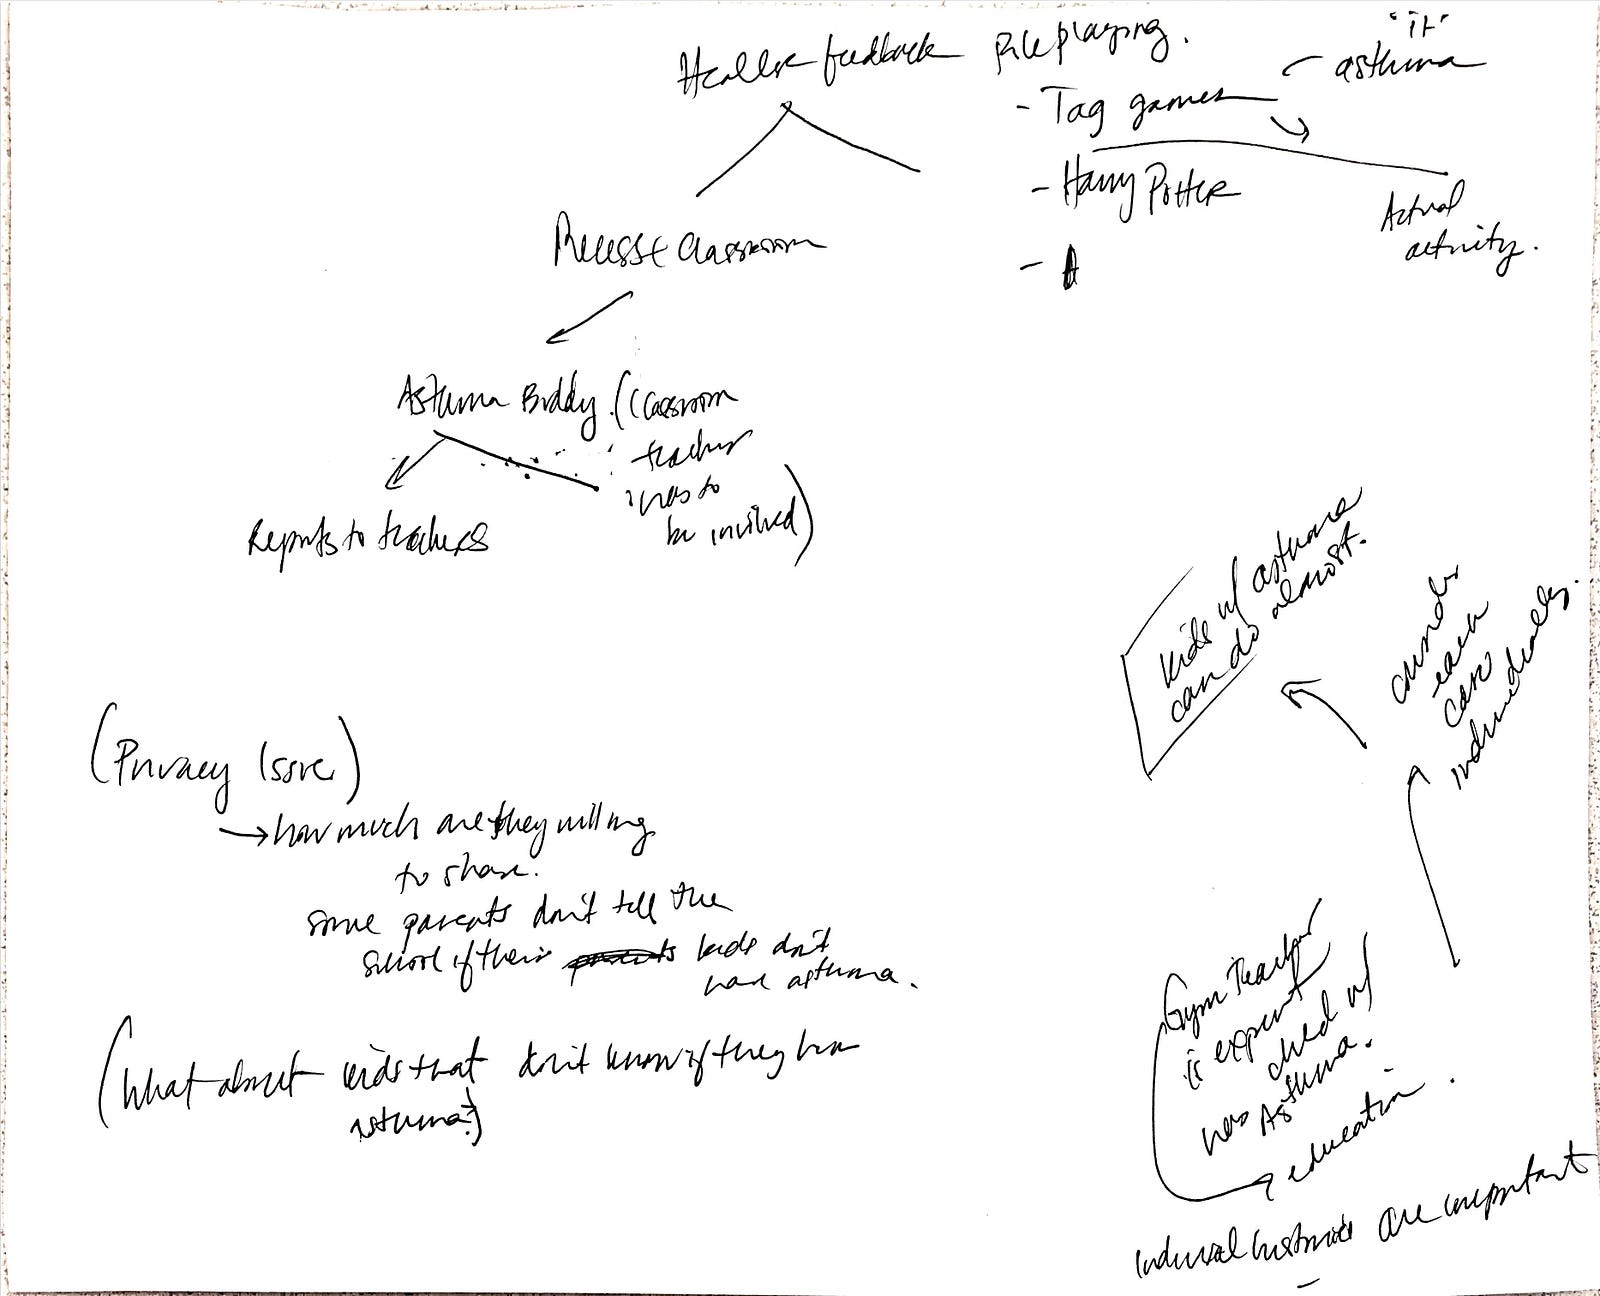 feedback Roleplaying.
"it"
asthma
- Tag games
- Harry Potter
Actual
activity.
-
Recess + Classroom
Asthma Buddy. (Classroom
teacher
has to
be involved)
Reports to teachers
kids w/ asthma
can do almost.
consider
each
case
individually.
(Privacy Issue)
→ how much are they willing
to share.
some parents don't tell the
school if their parents kids don't
have asthma.
(What about kids that don't know if they have
asthma?)
Gym Teacher
is expert
child w/
has Asthma.
education.
are important